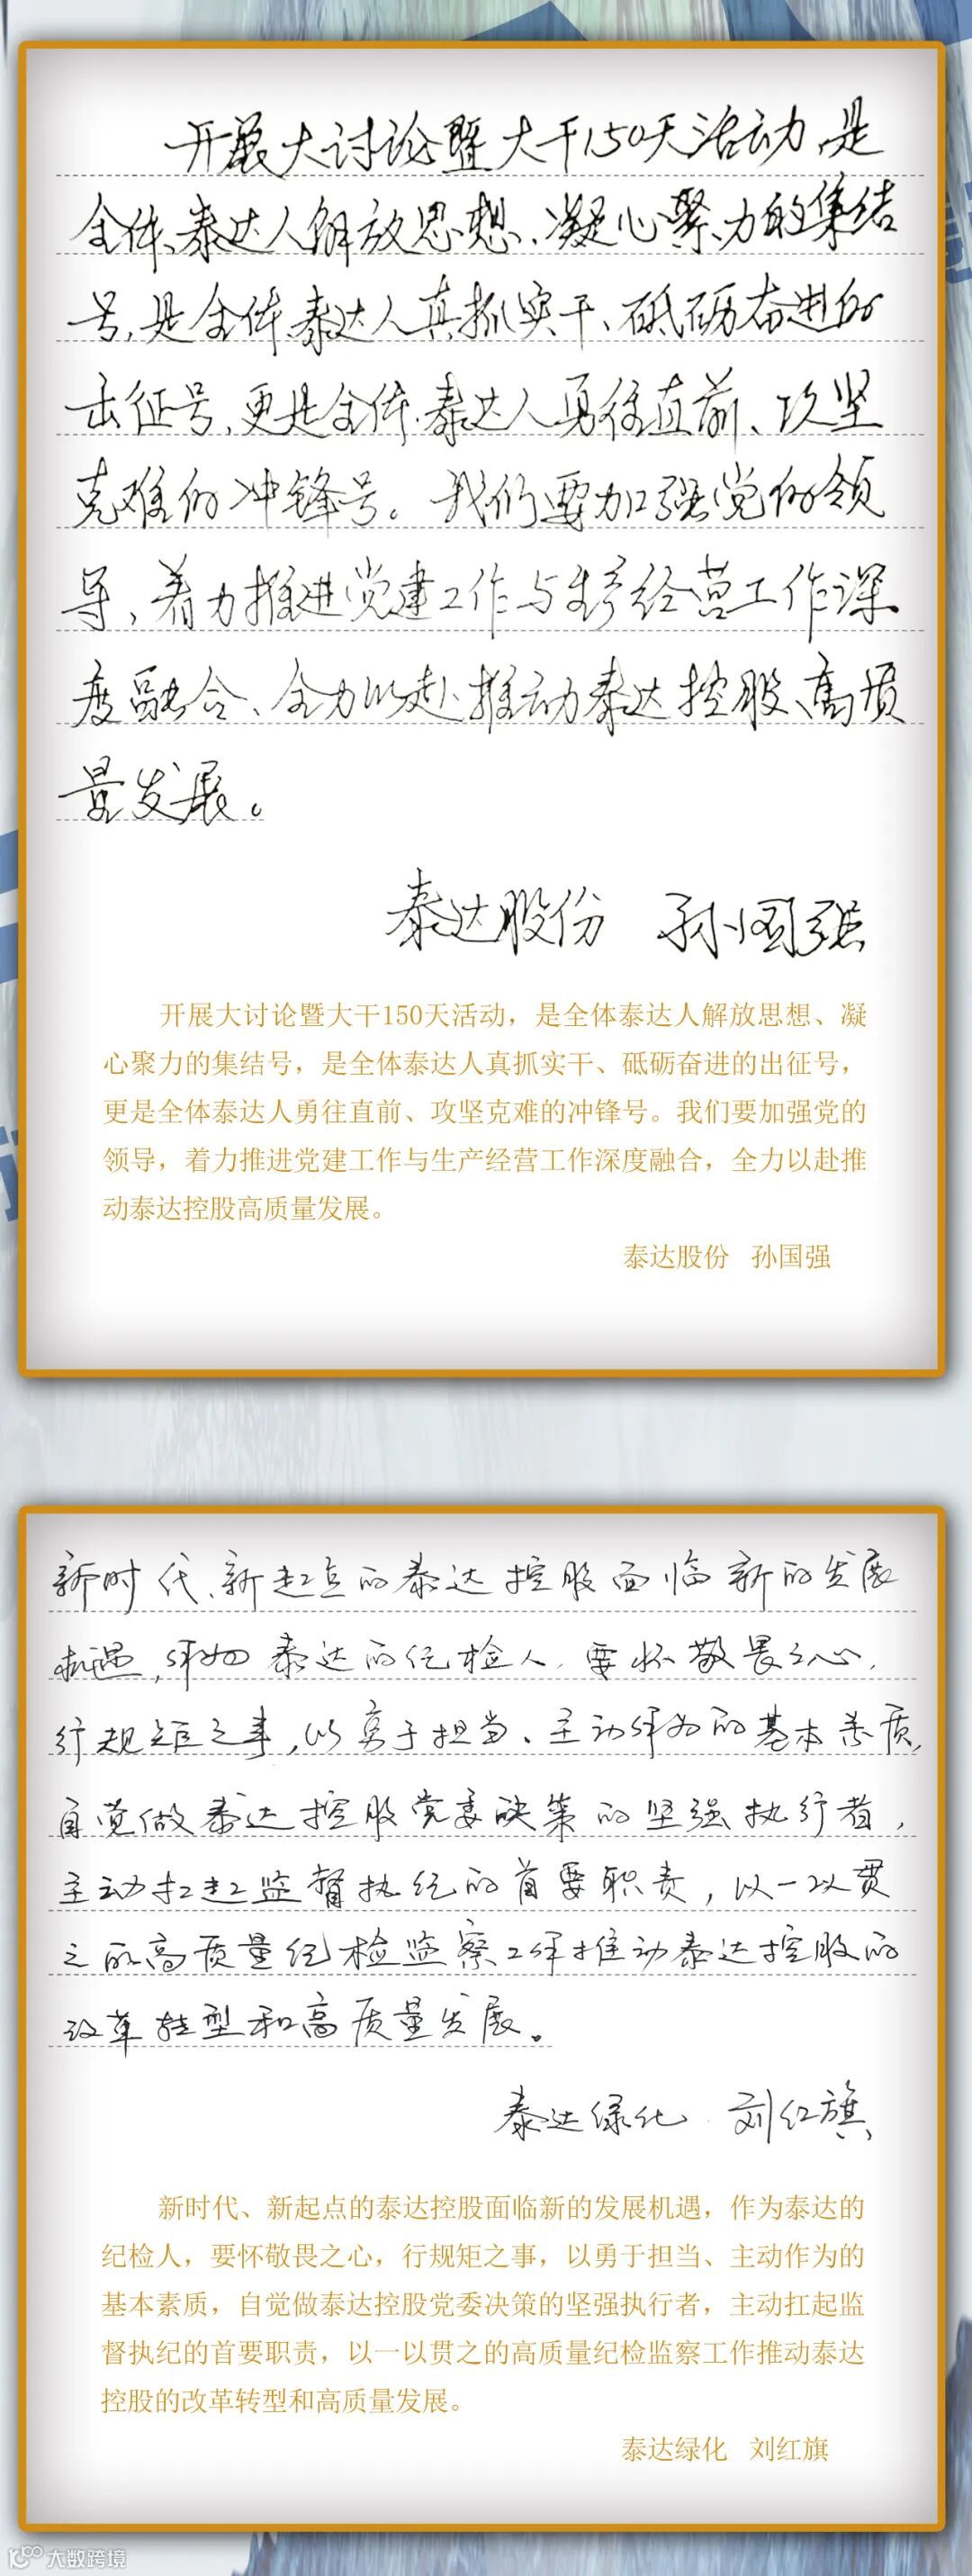 开展大讨论暨大干150天活动,是
全体泰达人解放思想、凝心聚力的集结
号,是全体泰达人真抓实干、砥砺奋进的
出征号,更是全体泰达人勇往直前、攻坚
克难的冲锋号。我们要加强党的领
导,着力推进党建工作与生产经营工作深
度融合、全力以赴推动泰达控股高质
量发展。
泰达股份 孙国强
开展大讨论暨大干150天活动，是全体泰达人解放思想、凝
心聚力的集结号，是全体泰达人真抓实干、砥砺奋进的出征号，
更是全体泰达人勇往直前、攻坚克难的冲锋号。我们要加强党的
领导，着力推进党建工作与生产经营工作深度融合，全力以赴推
动泰达控股高质量发展。
泰达股份 孙国强
新时代、新起点的泰达控股面临新的发展
机遇,作为泰达的纪检人,要怀敬畏之心,
行规矩之事,以勇于担当、主动作为的基本素质,
自觉做泰达控股党委决策的坚强执行者,
主动扛起监督执纪的首要职责,以一以贯
之的高质量纪检监察工作推动泰达控股的
改革转型和高质量发展。
泰达绿化 刘红旗
新时代、新起点的泰达控股面临新的发展机遇，作为泰达的
纪检人，要怀敬畏之心，行规矩之事，以勇于担当、主动作为的
基本素质，自觉做泰达控股党委决策的坚强执行者，主动扛起监
督执纪的首要职责，以一以贯之的高质量纪检监察工作推动泰达
控股的改革转型和高质量发展。
泰达绿化 刘红旗
大数跨境